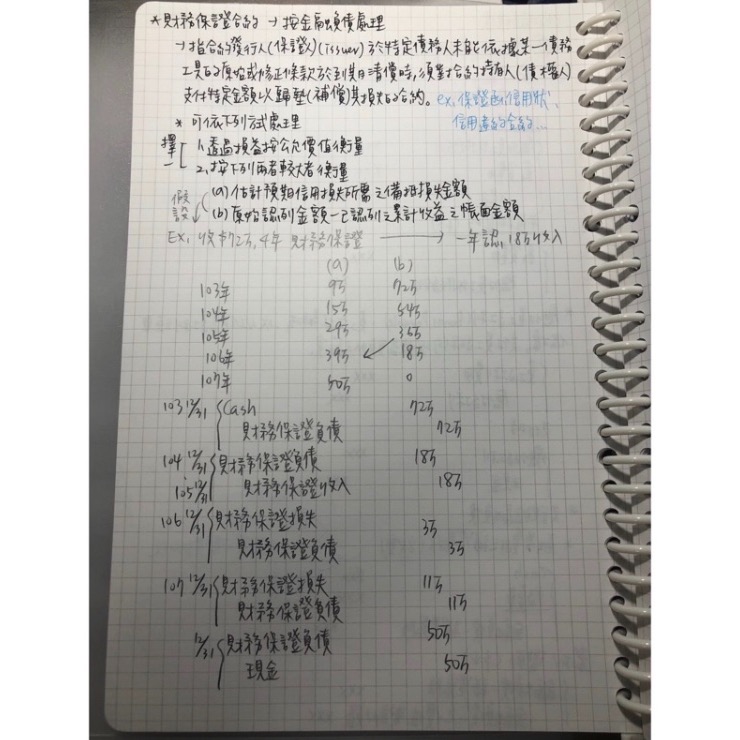 *財務保證合約 → 按金融負債處理
→指合約發行人(保證人)(issuer)於特定債務人未能依據某一債務
工具的原始或修正條款於到期日清償時,須對合約持有人(債權人)
支付特定金額以歸墊(補償)其損失的合約。ex. 保證函、信用狀、
信用違約合約...
* 可依下列方式處理
擇一 1.透過損益按公允價值衡量
2.按下列兩者較大者衡量
(a)估計預期信用損失所需之備抵損失金額
假設 (b)原始認列金額-已認列之累計收益之帳面金額
Ex. 收$72万, 4年 財務保證 → 一年認18万收入
(a) (b)
103年 9万 72万
104年 15万 54万
105年 29万 36万
106年 39万 18万
107年 50万 0
103 12/31 Cash 72万
財務保證負債 72万
104 12/31 財務保證負債 18万
105 12/31 財務保證收入 18万
106 12/31 財務保證損失 3万
財務保證負債 3万
107 12/31 財務保證損失 11万
財務保證負債 11万
12/31 財務保證負債 50万
現金 50万